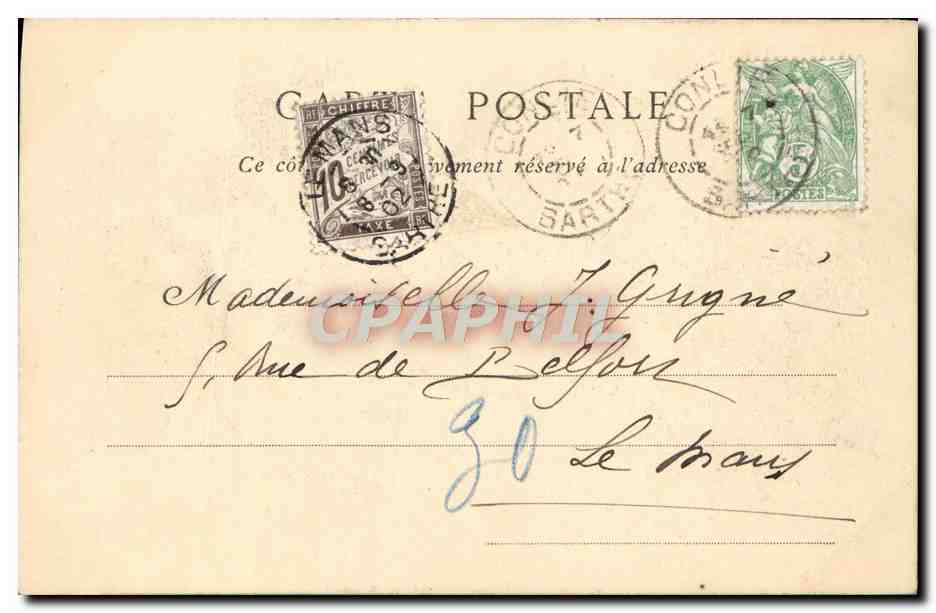 CARTE POSTALE
Ce côté exclusivement réservé à l'adresse
CHIFFRE
10
CENTIMES
A PERCEVOIR
TAXE
LE MANS
SARTHE
02
CONLIE
SARTHE
7
5
POSTES
Mademoiselle J. Grigné
5, Rue de Belfort
30
Le Mans
CPAPHIL